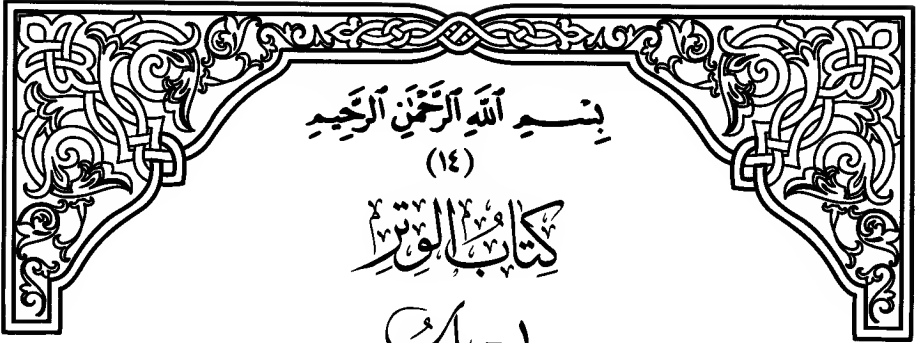 بِسْمِ ٱللَّهِ ٱلرَّحْمَٰنِ ٱلرَّحِيمِ
(١٤)
كِتَابُ الْوِتْرِ